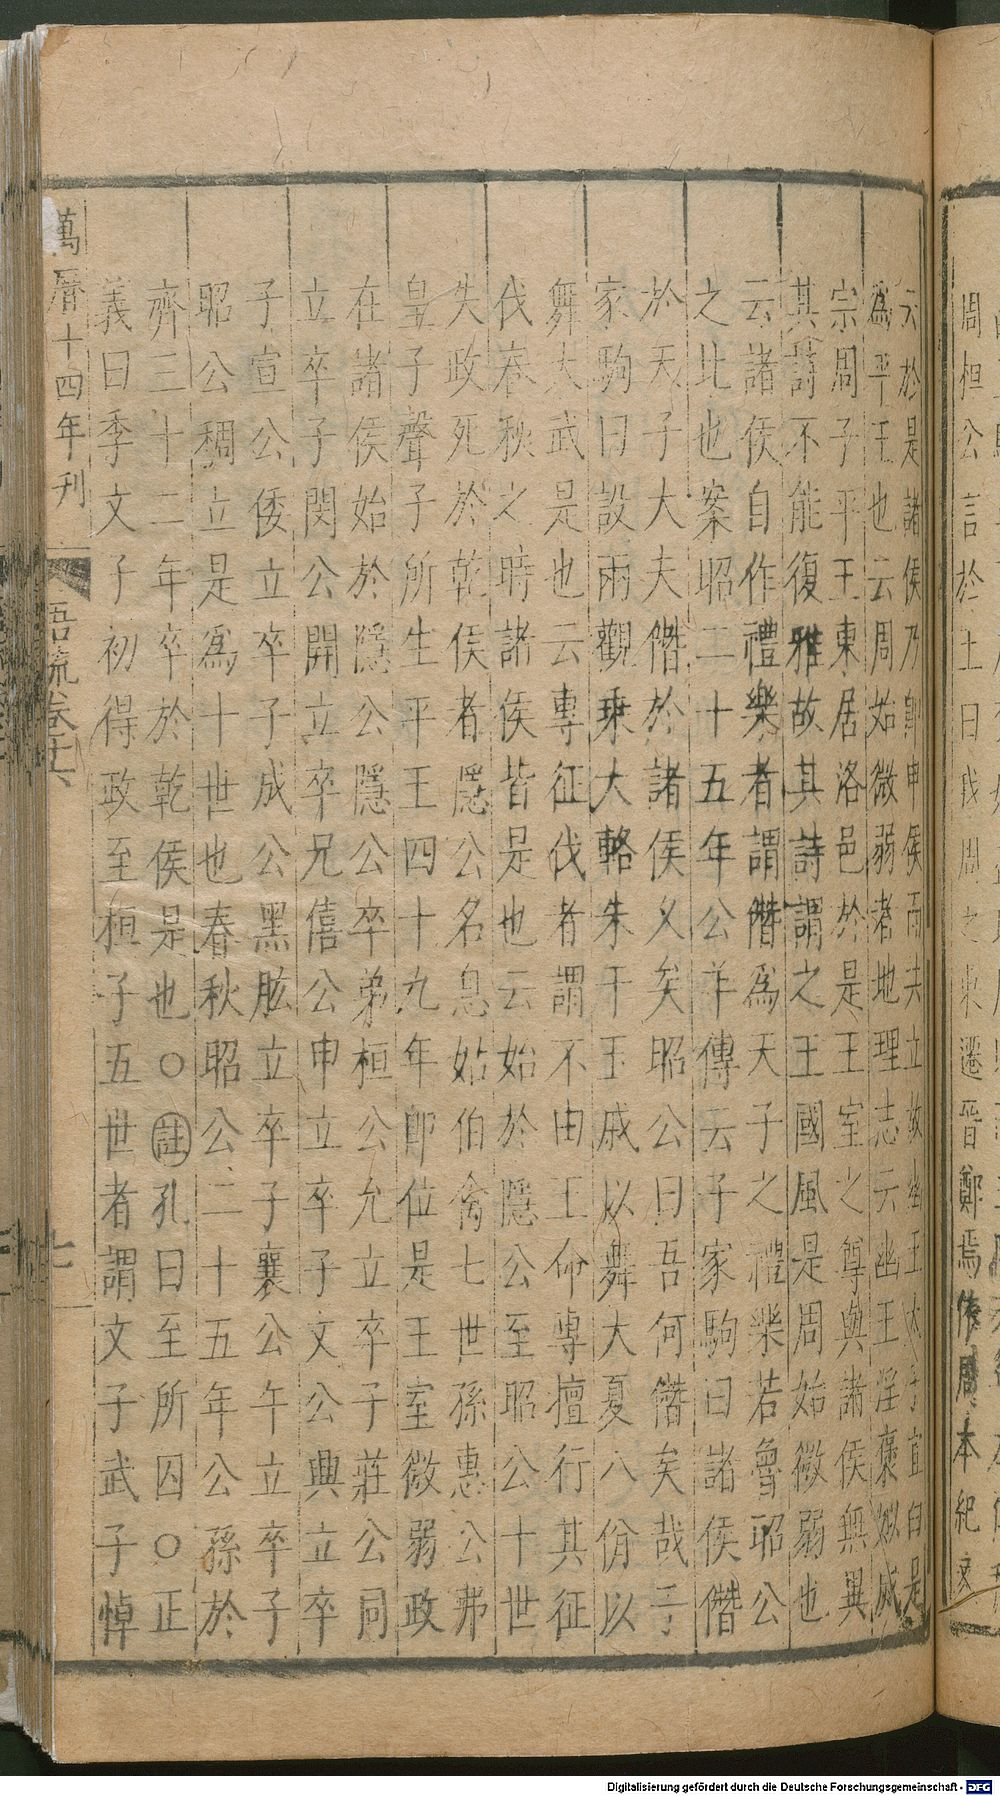 周桓公言於王曰我周之東遷晉鄭焉依周本紀文
云於是諸侯乃即申侯而共立故幽王太子宜臼是
為平王也云周始微弱者地理志云幽王淫褒姒滅
宗周子平王東居洛邑於是王室之尊與諸侯無異
其詩不能復雅故其詩謂之王國風是周始微弱也
云諸侯自作禮樂者謂僭為天子之禮樂若魯昭公
之比也案昭二十五年公羊傳云子家駒曰諸侯僭
於天子大夫僭於諸侯久矣昭公曰吾何僭矣哉子
家駒曰設兩觀乘大輅朱干玉戚以舞大夏八佾以
舞大武是也云專征伐者謂不由王命專擅行其征
伐春秋之時諸侯皆是也云始於隱公至昭公十世
失政死於乾侯者隱公名息姑伯禽七世孫惠公弗
皇子聲子所生平王四十九年即位是王室微弱政
在諸侯始於隱公隱公卒弟桓公允立卒子莊公同
立卒子閔公開立卒兄僖公申立卒子文公興立卒
子宣公倭立卒子成公黑肱立卒子襄公午立卒子
昭公稠立是為十世也春秋昭公二十五年公孫於
齊三十二年卒於乾侯是也○註孔曰至所囚○正
義曰季文子初得政至桓子五世者謂文子武子悼
萬曆十四年刊 語疏卷十六 七
Digitalisierung gefördert durch die Deutsche Forschungsgemeinschaft - DFG